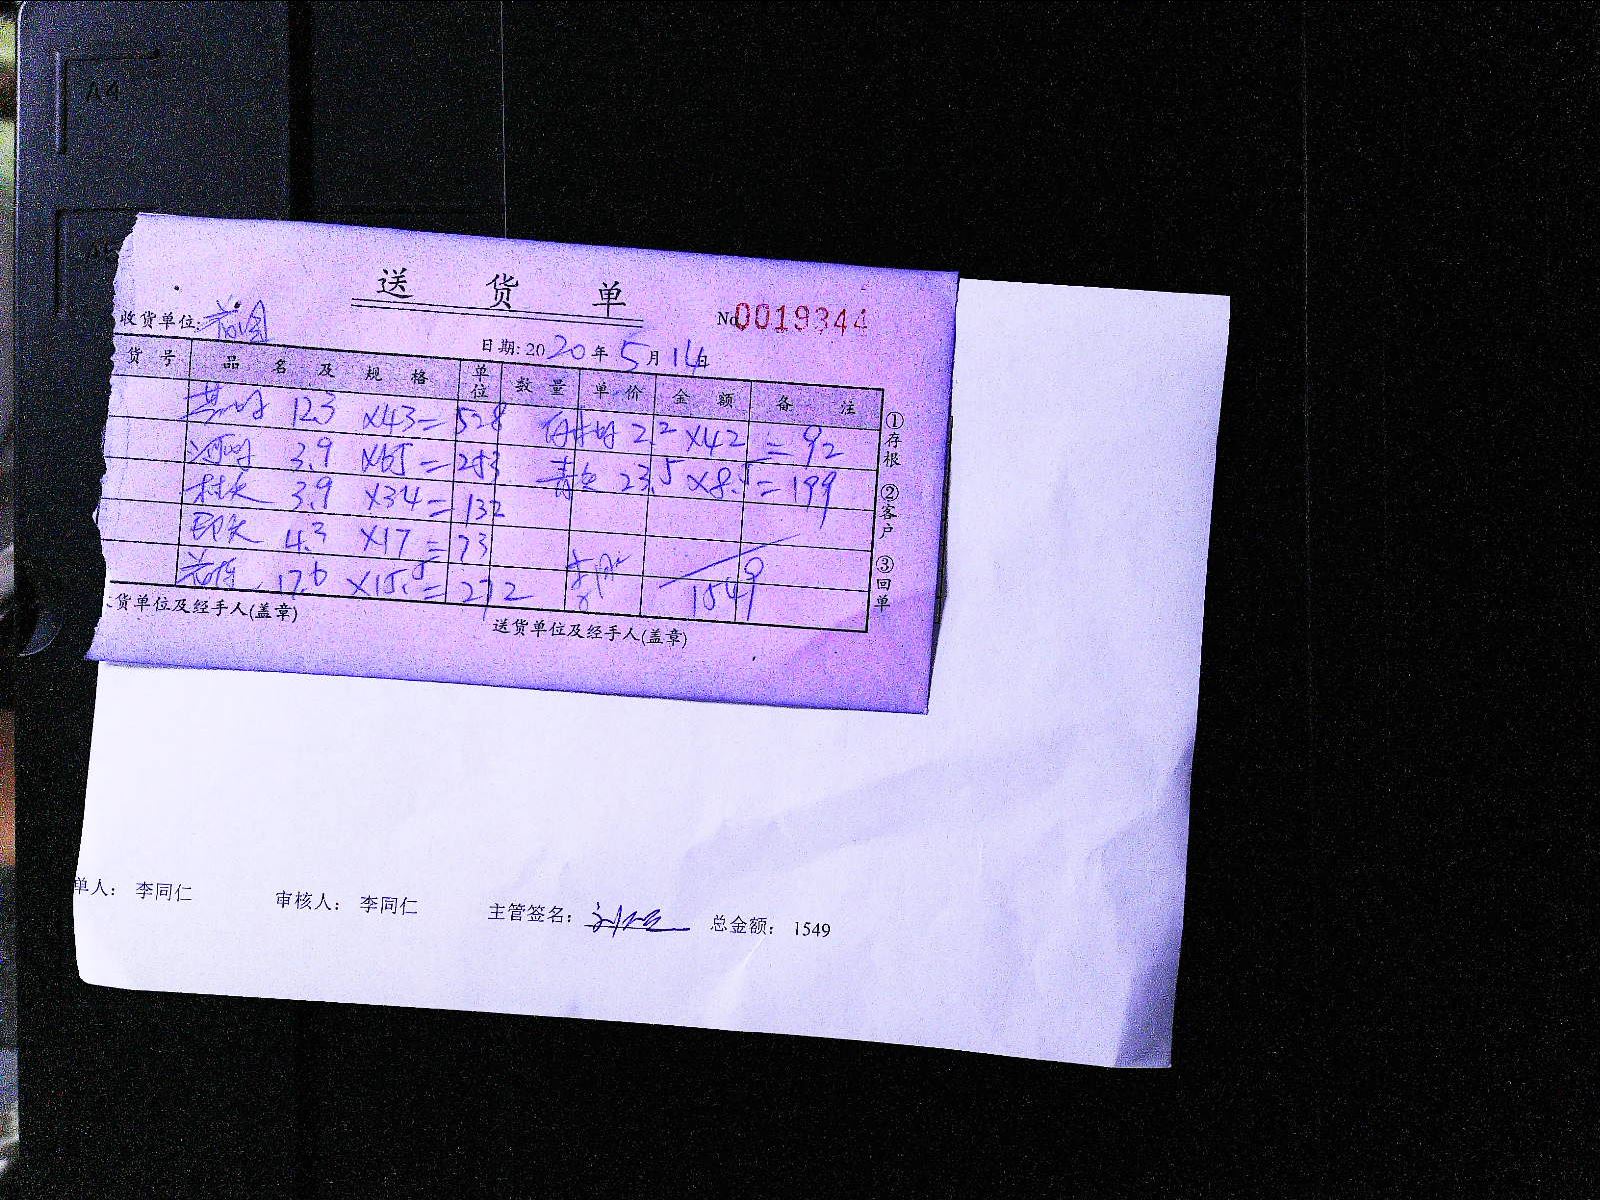 A4
A5
送 货 单
No 0019344
收货单位:
日期: 2020 年 5 月 14 日
货 号 品 名 及 规 格 单位 数 量 单 价 金 额 备 注
12.3 ×43= 528 2.2 ×42 = 92
3.9 ×65 = 253 23.5 ×8.5 = 199
3.9 ×34 = 132
4.3 ×17 = 73
17.6 ×15.5 = 272 1549
①存根 ②客户 ③回单
货单位及经手人(盖章) 送货单位及经手人(盖章)
单人： 李同仁 审核人： 李同仁 主管签名： 总金额： 1549